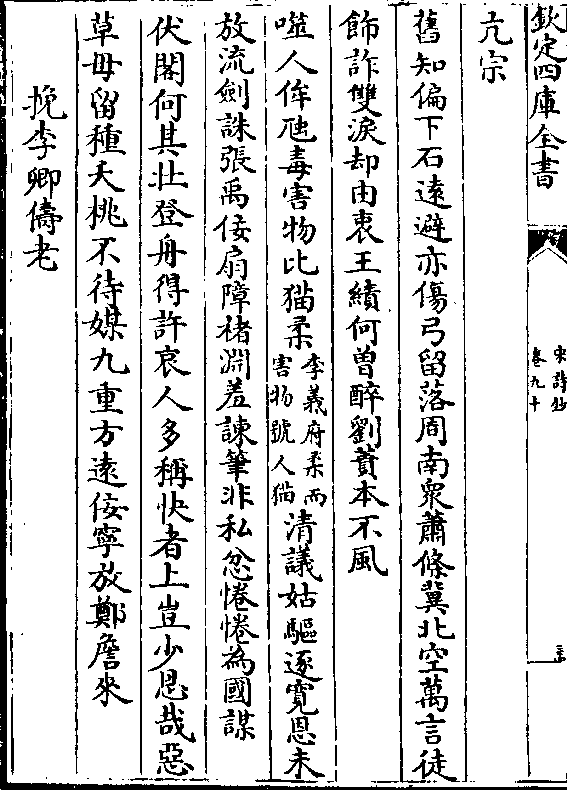 欽定四庫全書
宋詩鈔
卷九十
亢宗
舊知偏下石遠避亦傷弓留落周南衆蕭條冀北空萬言徒
飾詐雙淚却由衷王績何曾醉劉蕡本不風
噬人侔虺毒害物比猫柔李義府柔而害物號人猫清議姑驅逐寛恩未
放流劍誅張禹佞扇障褚淵羞諫筆非私忿惓惓為國謀
伏閣何其壯登舟得許哀人多稱快者上豈少恩哉惡
草毋留種夭桃不待媒九重方遠佞寧放鄭詹來
挽李卿儔老